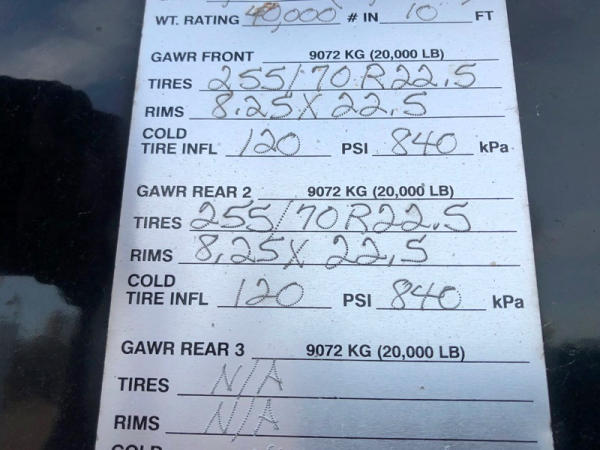 WT. RATING 40,000 # IN 10 FT
GAWR FRONT 9072 KG (20,000 LB)
TIRES 255/70R22.5
RIMS 8.25X22.5
COLD
TIRE INFL 120 PSI 840 kPa
GAWR REAR 2 9072 KG (20,000 LB)
TIRES 255/70R22.5
RIMS 8,25X 22,5
COLD
TIRE INFL 120 PSI 840 kPa
GAWR REAR 3 9072 KG (20,000 LB)
TIRES N/A
RIMS N/A
COLD